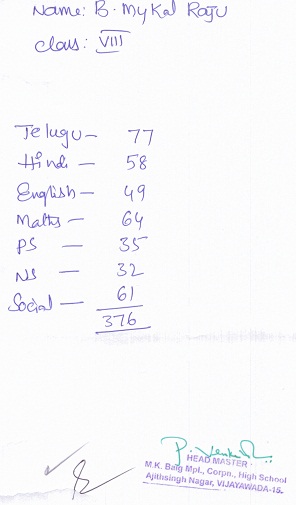 Name: B. Mykal Raju
class: VIII
Telugu — 77
Hindi — 58
English — 49
Maths — 64
PS — 35
NS — 32
Social — 61
376
HEAD MASTER
M.K. Baig Mpl., Corpn., High School
Ajithsingh Nagar, VIJAYAWADA-15.